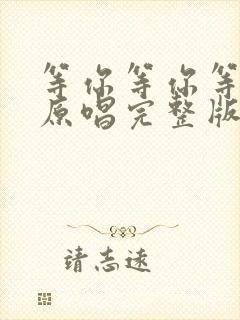 等你等你等
原唱完整版
请志远